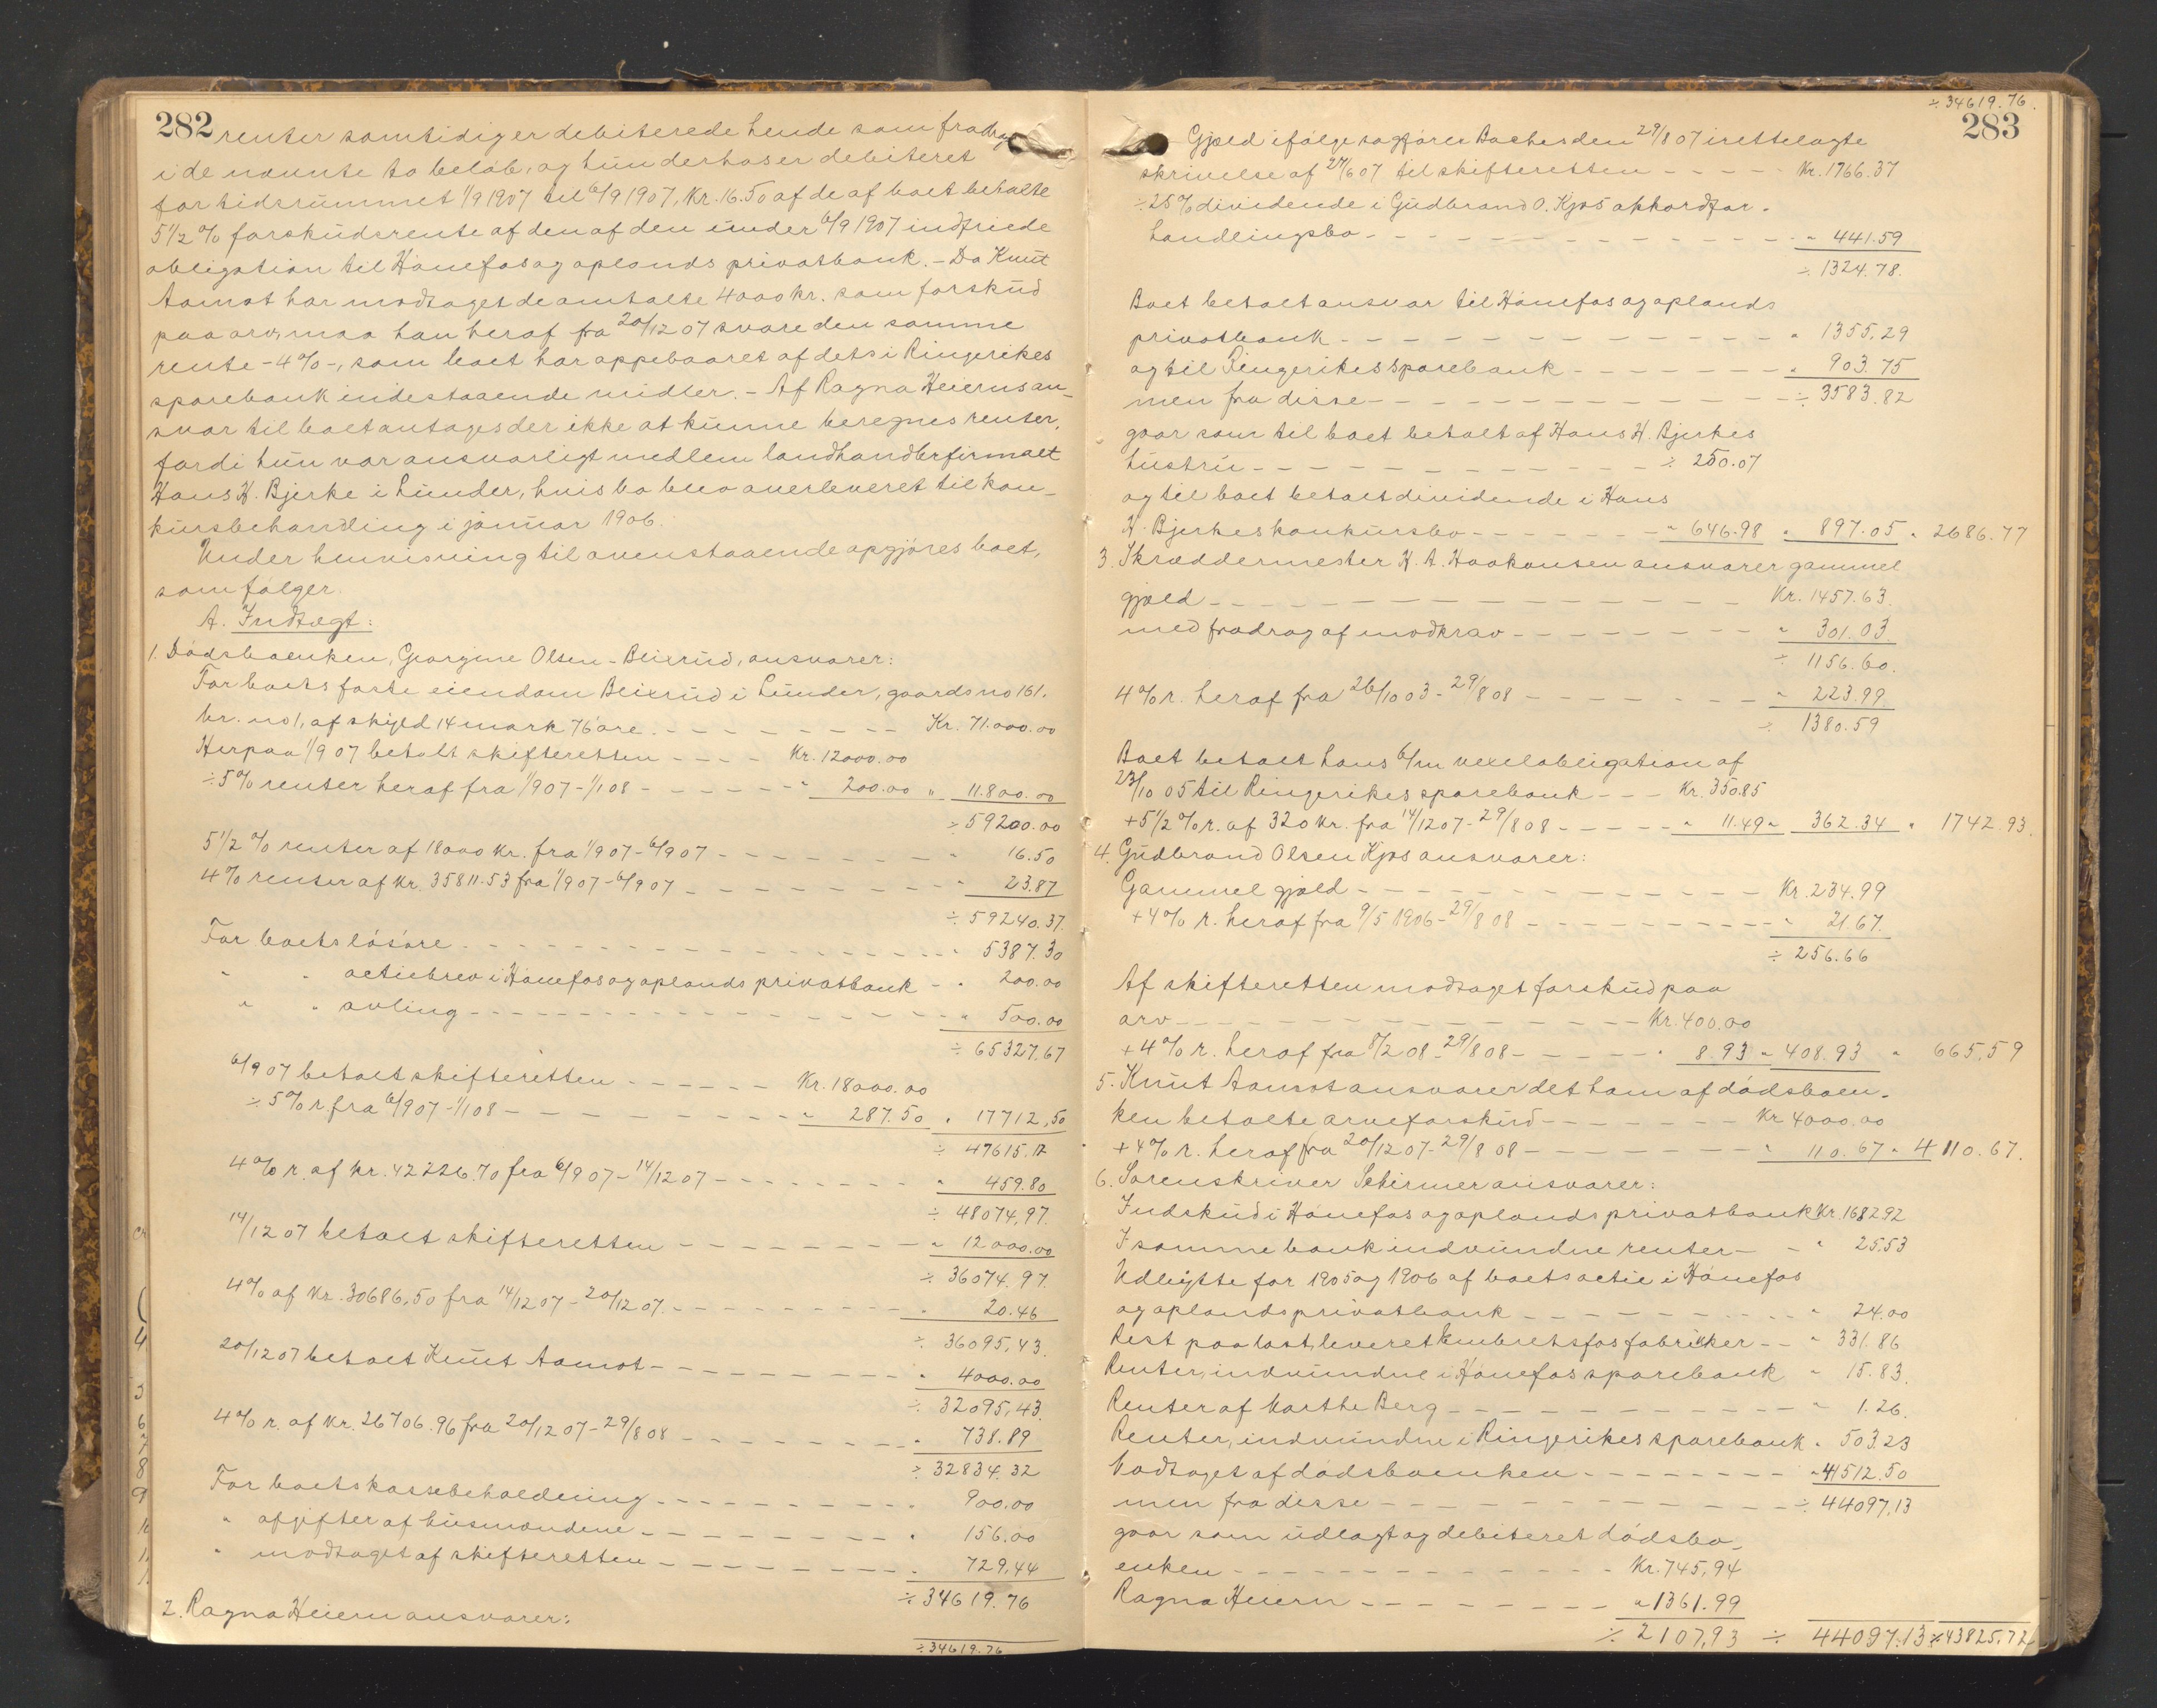 282 renter samtidig er debiterede hende som fradrag
i de nævnte to beløb, og hun derhos er debiteret
for tidsrummet 1/9 1907 til 6/9 1907, Kr. 16.50 af de af boet betalte
5 1/2 % forskudsrente af den af den under 6/9 1907 indfriede
obligation til Hønefos og oplands privatbank. - Da Knut
Aamot har modtaget de omtalte 4000 kr. som forskud
paa arv, maa han heraf fra 20/12 07 svare den samme
rente - 4 % -, som boet har oppebaaret af dets i Ringerikes
sparebank indestaaende midler. - Af Ragna Heierns an-
svar til boet antages der ikke at kunne beregnes renter,
fordi hun var ansvarligt medlem landhandlerfirmaet
Hans H. Bjerke i Lunder, hvis bo blev overleveret til kon-
kursbehandling i januar 1906.
Under henvisning til ovenstaaende opgjøres boet,
som følger.
A. Indtægt:
1. Dødsboenken, Georgine Olsen-Bleiksrud, ansvarer:
For boets faste eiendom Bleiksrud i Lunder, gaards no 161.
br. no 1, af skyld 14 mark 76 øre. - - - Kr. 71.000.00
Herpaa 1/9 07 betalt skifteretten - - - Kr. 12000.00
÷ 5 % renter heraf fra 1/9 07 - 1/1 08 - - - " 200.00 " 11.800.00
÷ 59200.00
5 1/2 % renter af 18000 kr. fra 1/9 07 - 6/9 07 - - - " 16.50
4 % renter af Kr. 35811.53 fra 1/9 07 - 6/9 07 - - - " 23.87
÷ 59240.37.
For boets løsøre - - - " 5387.30
" " actiebrev i Hønefos og oplands privatbank - " 200.00
" " avling - - - " 500.00
÷ 65327.67
6/9 07 betalt skifteretten - - - Kr. 18000.00
÷ 5 % r fra 6/9 07 - 1/1 08 - - - " 287.50 " 17712,50
÷ 47615.17
4 % r. af kr. 42226.70 fra 6/9 07 - 14/12 07 - - - " 459.80
÷ 48074,97.
14/12 07 betalt skifteretten - - - " 12000.00
÷ 36074.97.
4 % af Kr. 30686,50 fra 14/12 07 - 20/12 07. - - - " 20.46
÷ 36095,43.
20/12 07 betalt Knut Aamot - - - " 4000.00
÷ 32095,43.
4 % r. af kr. 26706.96 fra 20/12 07 - 29/8 08 - - - " 738.89
÷ 32834.32
For boets kassebeholdning - - - " 900.00
" afgifter af husmændene - - - " 156.00
" modtaget af skifteretten - - - " 729,44
÷ 34619.76
2. Ragna Heiern ansvarer:
÷ 34619.76
÷ 34619.76.
283
Gjæld ifølge sagfører Baches den 29/8 07 irettelagte
skrivelse af 27/6 07 til skifteretten - - - Kr. 1766.37
÷ 25 % dividende i Gudbrand O. Kjøs akkordfor-
handlingsbo - - - " 441.59
÷ 1324.78.
Boet betalt ansvar til Hønefos og oplands
privatbank - - - " 1355,29
og til Ringerikes sparebank - - - " 903.75
men fra disse - - - ÷ 3583.82
gaar som til boet betalt af Hans H. Bjerkes
hustru - - - ÷ 250.07
og til boet betalt dividende i Hans
H. Bjerkes konkursbo - - - " 646.98 " 897.05 " 2686.77
3. Skræddermester K. A. Haakonsen ansvarer gammel
gjæld - - - Kr. 1457.63.
med fradrag af modkrav - - - " 301.03.
÷ 1156.60.
4 % r. heraf fra 26/10 03 - 29/8 08 - - - " 223.99
÷ 1380.59
Boet betalt hans 6/m vexelobligation af
23/10 05 til Ringerikes sparebank - - - Kr. 350.85
+ 5 1/2 % r. af 320 kr. fra 14/12 07 - 29/8 08 - - - " 11.49 " 362.34 " 1742.93.
4. Gudbrand Olsen Kjøs ansvarer:
Gammel gjæld - - - Kr. 234.99
+ 4 % r. heraf fra 9/5 1906 - 29/8 08 - - - " 21.67.
÷ 256.66
Af skifteretten modtaget forskud paa
arv - - - Kr. 400.00
+ 4 % r. heraf fra 8/2 08 - 29/8 08 - - - " 8.93 " 408.93 " 665.59
5. Knut Aamot ansvarer det ham af dødsboen-
ken betalte arveforskud - - - Kr 4000.00
+ 4 % r. heraf fra 20/12 07 - 29/8 08 - - - " 110.67 " 4110.67.
6. Sorenskriver Schirmer ansvarer:
Indskud i Hønefos og oplands privatbank Kr. 1682.92
I samme bank indvundne renter - - " 25.53
Udbytte for 1905 og 1906 af boets actie i Hønefos
og oplands privatbank - - - " 24.00
Rest paa last, leveret Embretsfos fabrikker - - " 331.86
Renter, indvundne i Hønefos sparebank " 15.83.
Renter af Marthe Berg - - - " 1.26.
Renter, indvundne i Ringerikes sparebank " 503.23
Modtaget af dødsboenken - - - " 41512.50
men fra disse - - - ÷ 44097,13
gaar som udlagt og debiteret dødsbo-
enken - - - Kr. 745,94
Ragna Heiern - - - " 1361.99
÷ 2107,93 ÷ 44097.13 ÷ 43825,72